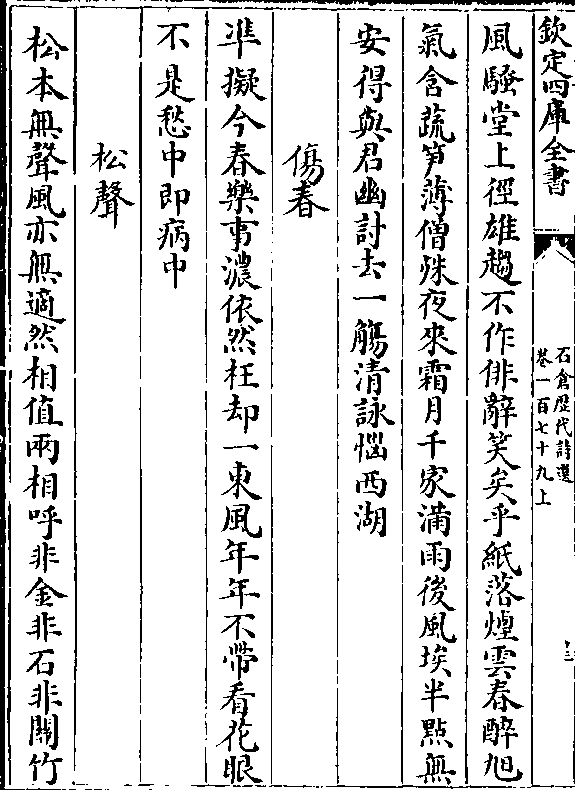 欽定四庫全書
石倉歴代詩選
卷一百七十九上
風騷堂上徑雄趨不作俳辭笑矣乎紙落煙雲春醉旭
氣含蔬笋薄僧殊夜來霜月千家滿雨後風埃半點無
安得與君幽討去一觴清詠惱西湖
傷春
準擬今春樂事濃依然枉却一東風年年不帶看花眼
不是愁中即病中
松聲
松本無聲風亦無適然相值兩相呼非金非石非關竹